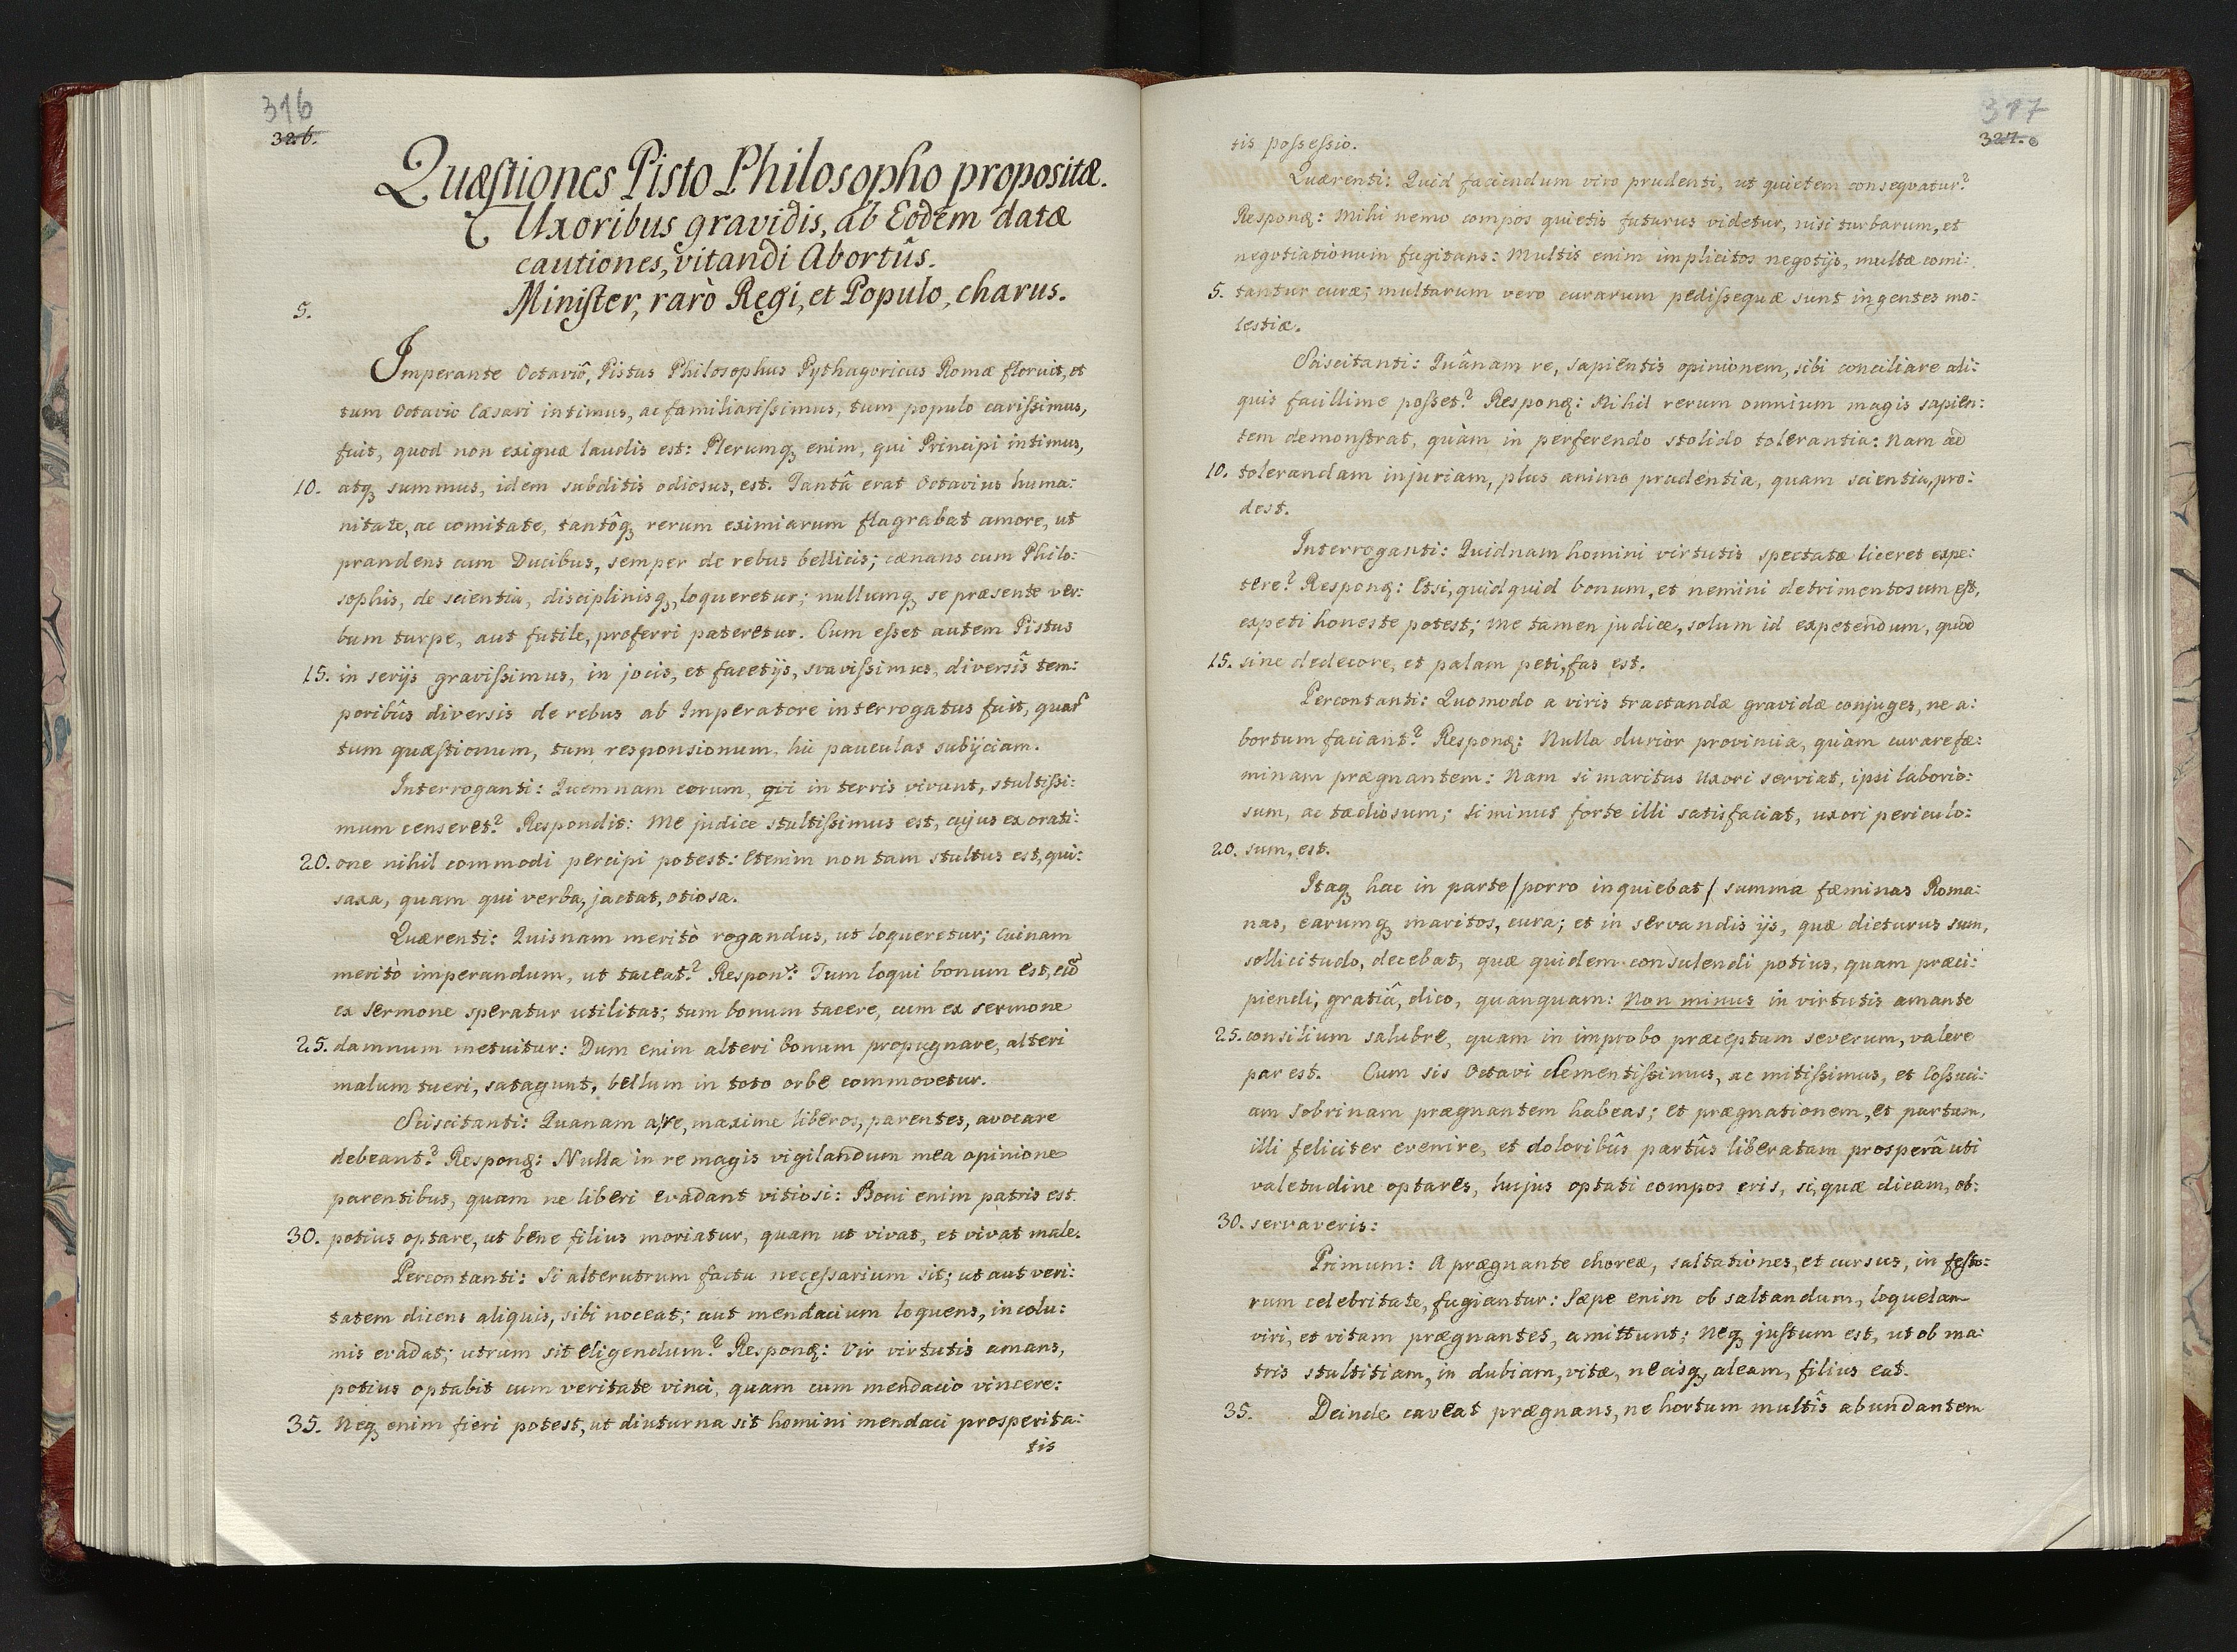 316
326.
Quæstiones Pisto Philosopho propositæ.
Uxoribus gravidis, ab Eodem datæ
cautiones, vitandi Abortûs.
Minister, rarò Regi, et Populo, charus.
5.
Imperante Octaviô, Pistus Philosophus Pythagoricus Romæ floruit, et
tum Octavio Cæsari intimus, ac familiarissimus, tum populo carissimus,
fuit, quod non exiguæ laudis est: Plerumq, enim, qui Principi intimus,
10. atq, summus, idem subditis odiosus, est. Tantâ erat Octavius huma:
nitate, ac comitate, tantôq, rerum eximiarum flagrabat amore, ut
prandens cum Ducibus, semper de rebus bellicis; cænans cum Philo:
sophis, de scientia, disciplinisq, loqueretur; nullumq, se præsente ver:
bum turpe, aut futile, proferri pateretur. Cum esset autem Pistus
15. in serijs gravissimus, in jocis, et facetijs, svavissimus, diversîs tem:
poribûs diversis de rebus ab Imperatore interrogatus fuit, quar̃
tum quæstionum, tum responsionum hic pauculas subijciam.
Interroganti: Quemnam eorum, qvi in terris vivunt, stultissi:
mum censeret? Respondit: Me judice stultissimus est, cujus ex orati:
20. one nihil commodi percipi potest: Etenim non tam stultus est, qui
saxa, quam qui verba, jactat, otiosa.
Quærenti: Quisnam meritò rogandus, ut loqueretur; Cuinam
meritò imperandum, ut taceat? Respon: Tum loqui bonum est, cũ
ex sermone speratur utilitas; tum bonum tacere, cum ex sermone
25. damnum metuitur: Dum enim alteri bonum propugnare, alteri
malum tueri, satagunt, bellum in toto orbe commovetur.
Sciscitanti: Quanam a re, maxime liberos, parentes, avocare
debeant? Responq: Nulla in re magis vigilandum mea opinione
parentibus, quam ne liberi evadant vitiosi: Boni enim patris est
30. potius optare, ut bene filius moriatur, quam ut vivat, et vivat male.
Percontanti: Si alterutrum factu necessarium sit; ut aut veri:
tatem dicens aliquis, sibi noceat; aut mendacium loquens, incolu:
mis evadat; utrum sit eligendum? Responq: Vir virtutis amans,
potius optabit cum veritate vinci, quam cum mendacio vincere:
35. Neq, enim fieri potest, ut diuturna sit homini mendaci prosperita:
tis
317
327.
tis possessio.
Quærenti: Quid faciendum viro prudenti, ut quietem conseqvatur?
Responq: Mihi nemo compos quietis futurus videtur, nisi turbarum, et
negotiationum fugitans: Multis enim implicitos negotijs, multæ comi:
5. tantur curæ; multarum vero curarum pedissequæ sunt ingentes mo:
lestiæ.
Sciscitanti: Quânam re, sapientis opinionem, sibi conciliare ali:
quis facillime posset? Responq: Nihil rerum omnium magis sapien:
tem demonstrat, quàm in perferendo stolido tolerantia: Nam ad
10. tolerandam injuriam, plus animo prudentia, quam scientia, pro:
dest.
Interroganti: Quidnam homini virtutis spectatæ liceret expe:
tere? Responq: Etsi, quidquid bonum, et nemini detrimentosum est,
expeti honeste potest; me tamen judice, solum id expetendum, quod
15. sine dedecore, et palam peti, fas est.
Percontanti: Quomodo a viris tractandæ gravidæ conjuges, ne a:
bortum faciant? Responq: Nulla durior provincia, quàm curare fæ:
minam prægnantem: Nam si maritus Uxori serviat, ipsi laborio:
sum, ac tædiosum; si minus forte illi satisfaciat, uxori periculo:
20. sum, est.
Itaq, hac in parte /porro inquiebat/ summa fæminas Roma:
nas, earumq, maritos, cura; et in servandis ijs, quæ dicturus sum,
sollicitudo, decebat, quæ quidem consulendi potius, quam præci:
piendi, gratiâ, dico, quanquam: Non minus in virtutis amante
25. consilium salubre, quam in improbo præceptum severum, valere
par est. Cum sis Octavi clementissimus, ac mitissimus, et Cossuci:
am sobrinam prægnantem habeas; et prægnationem, et partum,
illi feliciter evenire, et doloribûs partûs liberatam prosperâ uti
valetudine optares, hujus optati compos eris, si, quæ dicam, ob:
30. servaveris:
Primum: A prægnante choreæ, saltationes, et cursus, in festo:
rum celebritate, fugiantur: Sæpe enim ob saltandum, loquelam
viri, et vitam prægnantes, amittunt; Neq, justum est, ut ob ma:
tris stultitiam, in dubiam, vitæ, necisq, aleam, filius eat.
35. Deinde caveat prægnans, ne hortum multîs abundantem